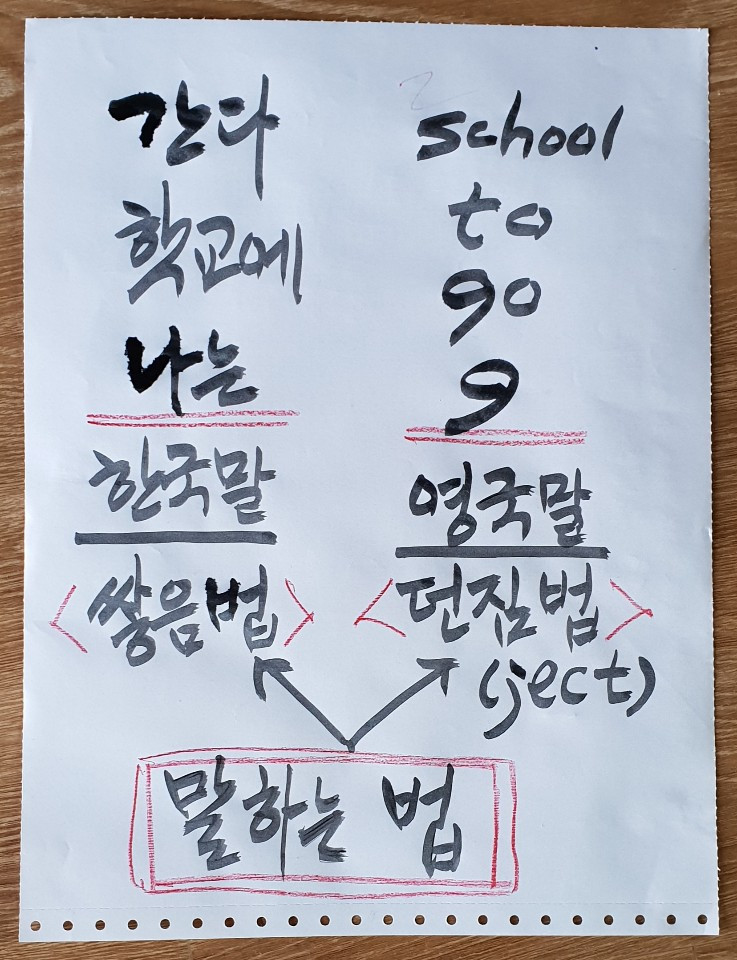 간다
학교에
나는
한국말
<쌓음법>
school
to
go
I
영국말
<던짐법>
(ject)
말하는 법